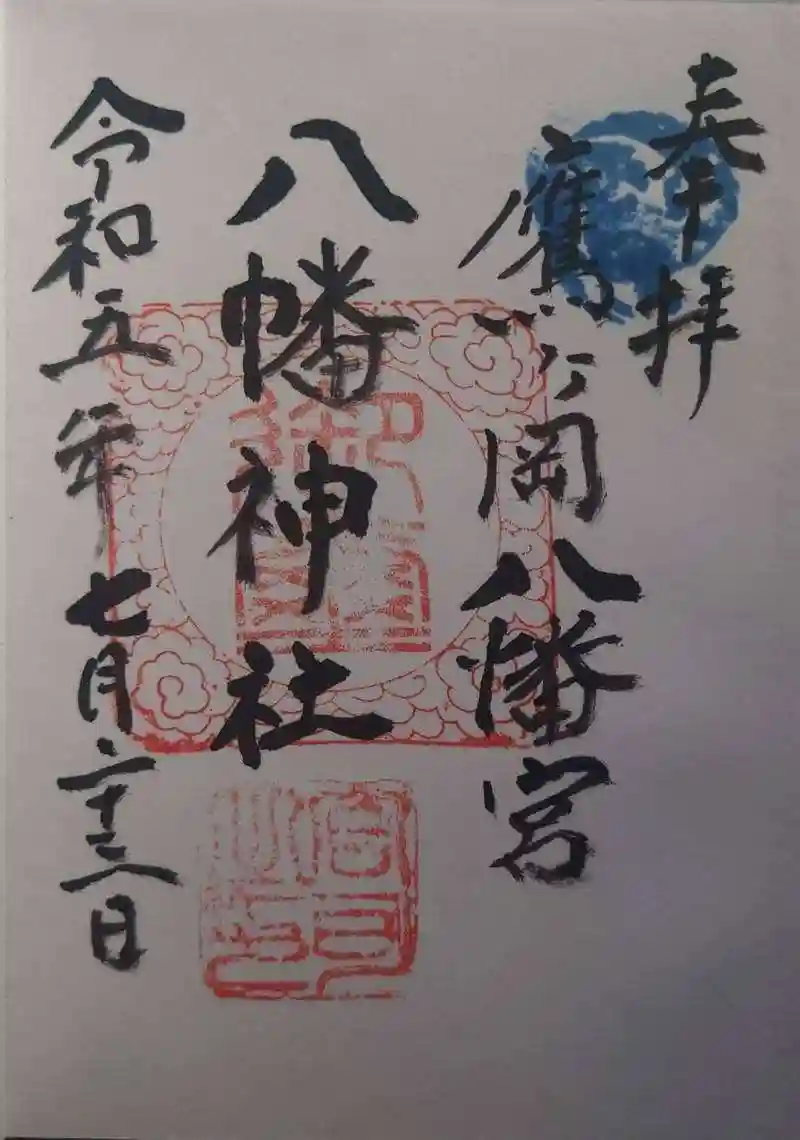 奉拝
鷹ヶ岡八幡宮
八幡神社
令和五年七月二十三日